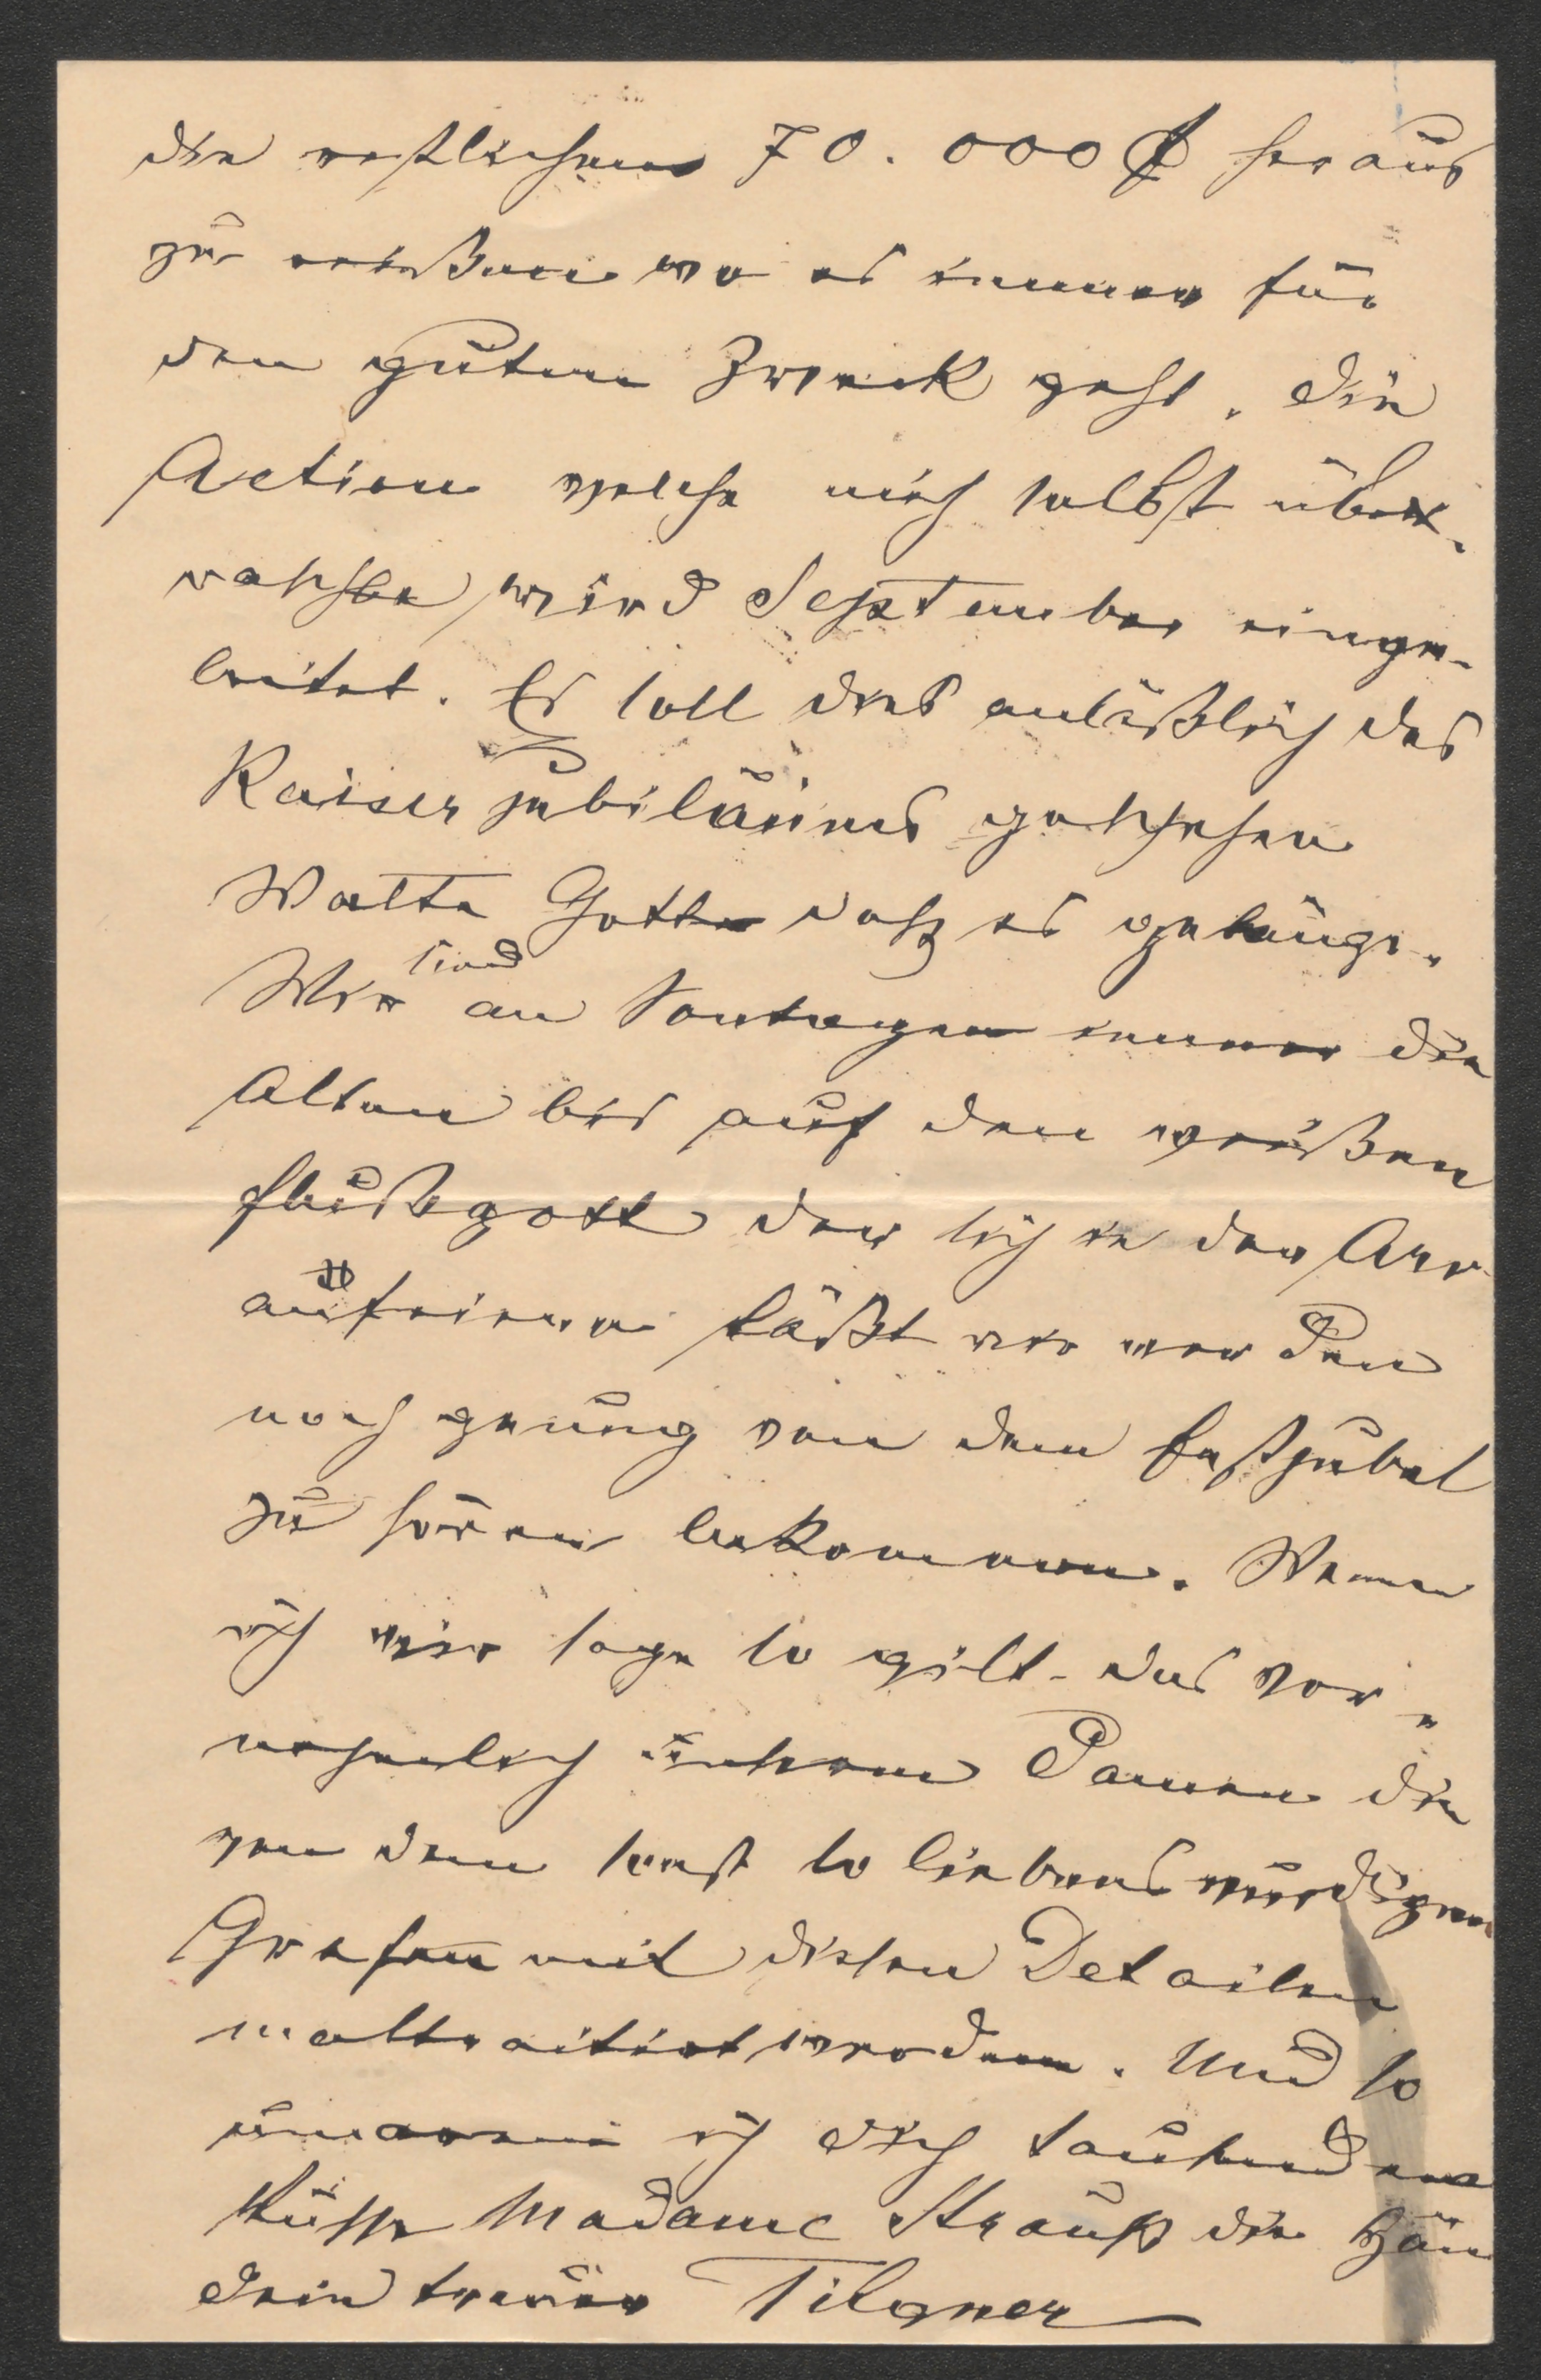 die restlichen 70.000 f heraus
zu reißen wo es immer für
den guten Zweck geht. Die
Action welche mich selbst über-
raschte, wird September einge-
leitet. Es soll dies anläßlich des
Kaiserjubiläums geschehen
Walte Gott daß es gelänge.
Wir sind an Sontagen immer die
Alten bis auf den weißen
Flußgott der sich in der
auffrieren läßt wir werden
noch genung von dem Festjubel
zu hören bekommen. Wenn
ich wir sage so gilt das vor-
nehmlich unseren Damen die
von dem sonst so liebenswürdigen
Grafen mit diesen Detailen
maltraitirt werden. Und so
umarme ich dich tausend
Küsse Madame Strauß die Hän
dein treuer Tilgner